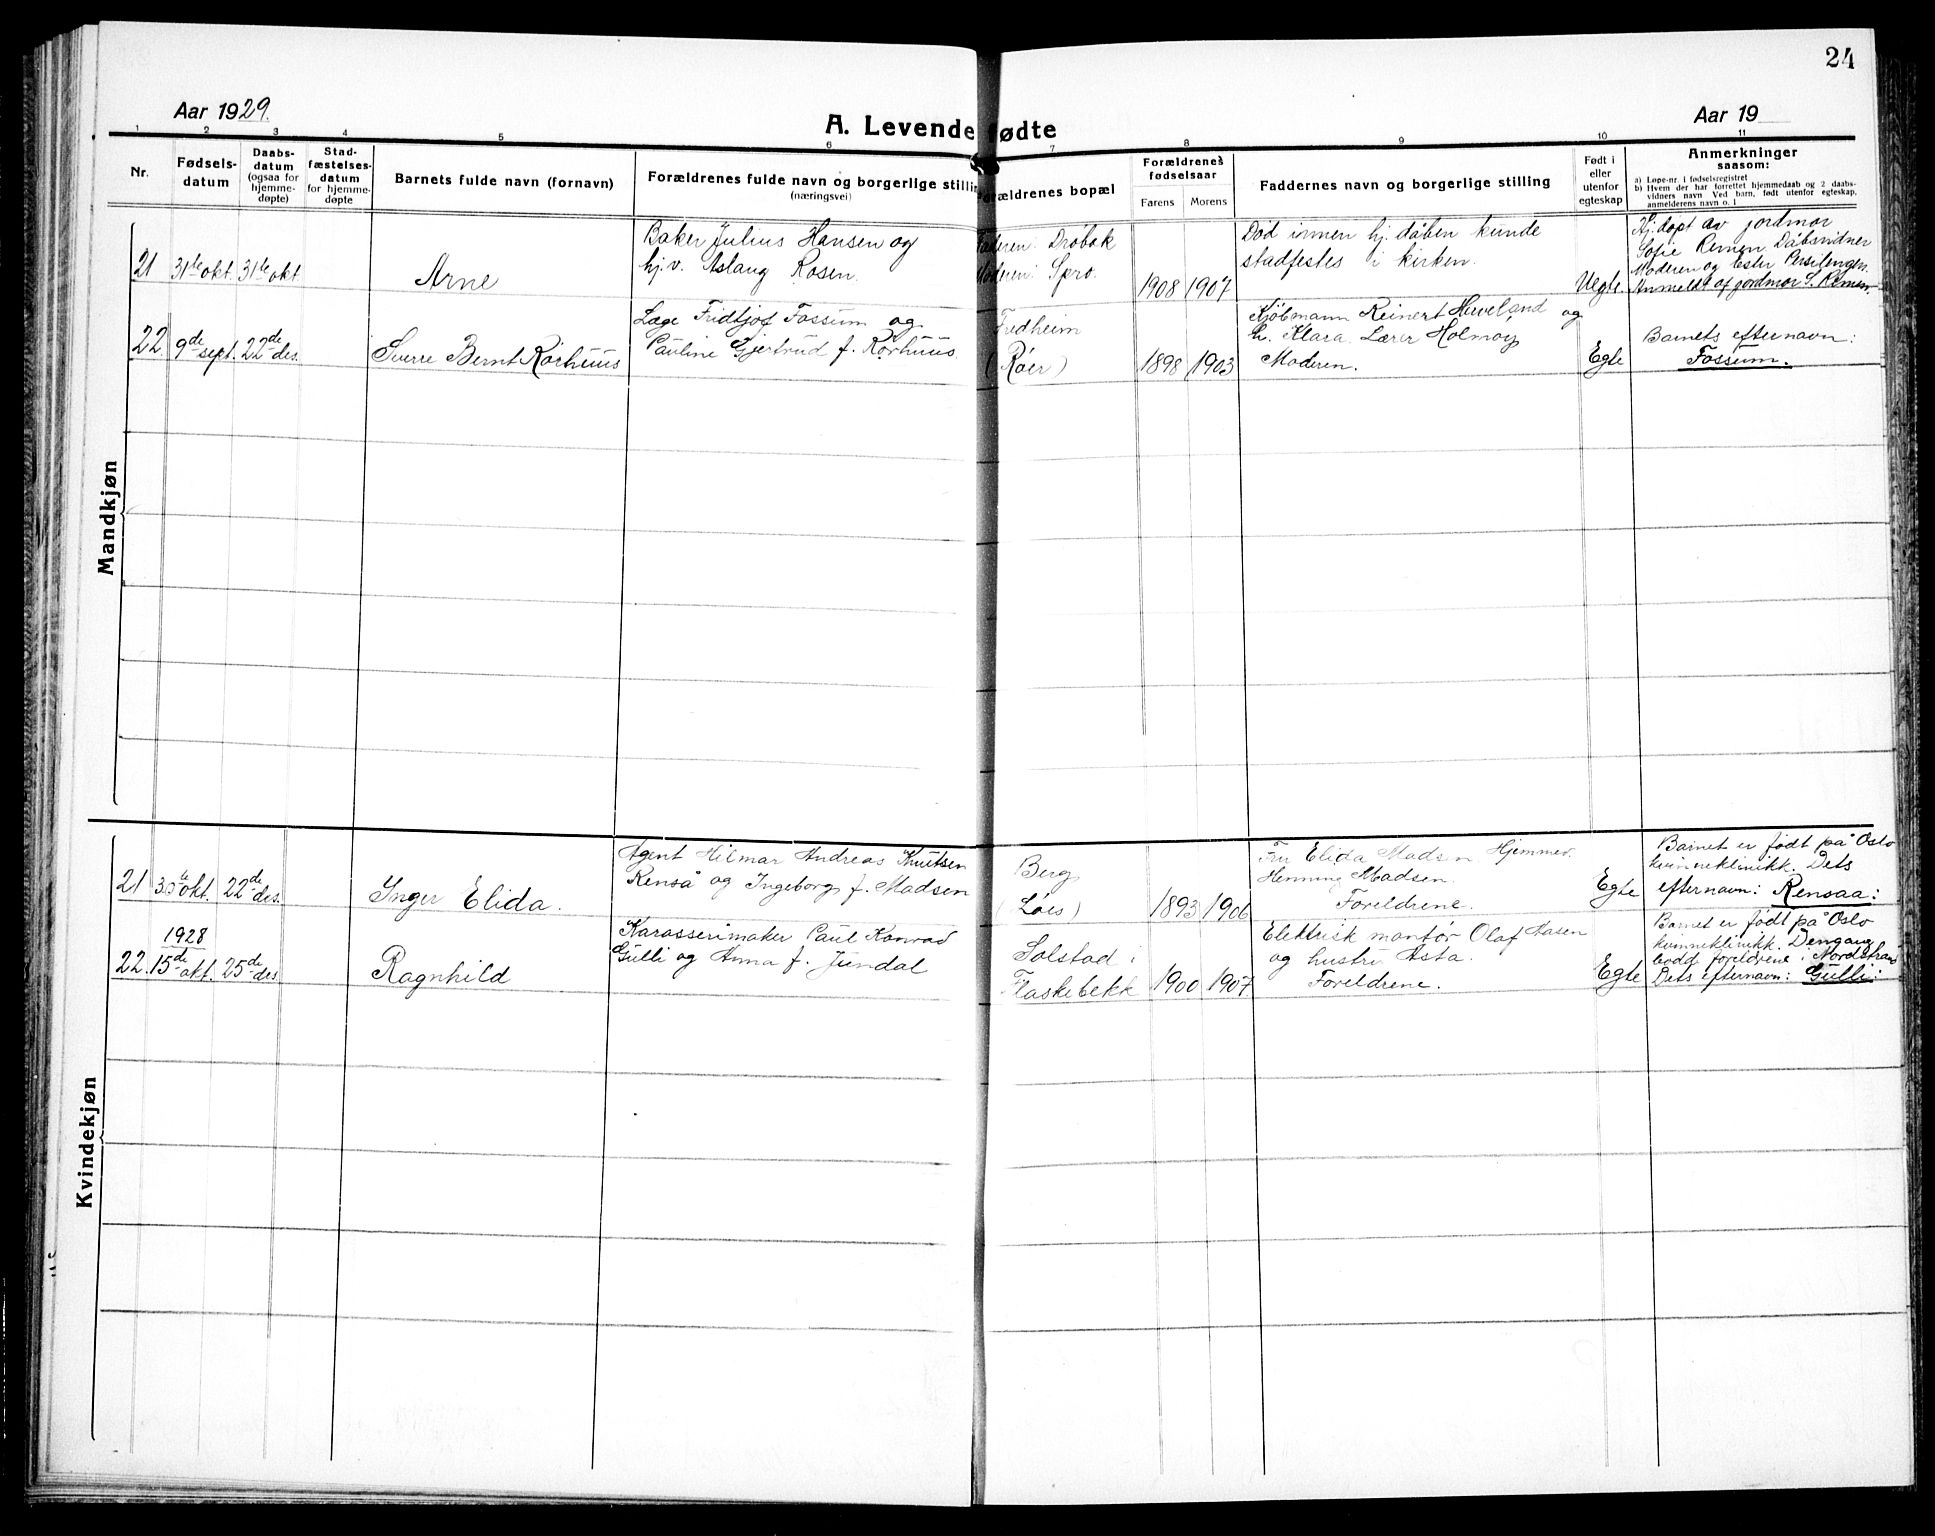 24
Aar 1929.
A. Levende fødte
Aar 19
1 2 3 4 5 6 7 8 9 10 11
Nr.
Fødsels-
datum
Daabs-
datum
(ogsaa for
hjemme-
døpte)
Stad-
fæstelses-
datum
for hjemme-
døpte
Barnets fulde navn (fornavn)
Forældrenes fulde navn og borgerlige stilling
(næringsvei)
Forældrenes bopæl
Forældrenes
fødselsaar
Farens Morens
Faddernes navn og borgerlige stilling
Født i
eller
utenfor
egteskap
Anmerkninger
saasom:
a) Løpe-nr. i fødselsregistret
b) Hvem der har forrettet hjemmedaab og 2 daabs-
vidners navn Ved barn, født utenfor egteskap,
anmelderens navn o. l
Mandkjøn
21 31te okt. 31te okt.
Arne
Baker Julius Hansen og
hj.v. Aslaug Rosen.
Faderen: Drøbak
Moderen: Spro.
1908 1907
Død innen hj. dåben kunde
stadfestes i kirken.
Uegte.
Hj. døpt av jordmor
Sofie Remen Dåbsvidner
Moderen og Ester Persilengen.
Anmeldt af jordmor S. Remen.
22 9de sept. 22de des.
Sverre Bernt Rørhuus
Læge Fridtjof Fossum og
Pauline Gjertrud f. Rørhuus.
Fredheim
(Røer)
1898 1903
Kjøbmann Reinert Haveland og
h. Klara. Lærer Holmøy
Moderen.
Egte
Barnets efternavn:
Fossum.
Kvindekjøn
21 30te okt. 22de des.
Inger Elida.
Agent Hilmar Andreas Knutsen
Renså og Ingeborg f. Madsen
Berg
(Løes)
1893 1906
Fru Elida Madsen Hjemmev.
Henning Madsen.
Foreldrene.
Egte
Barnet er født på Oslo
kvinneklinikk. Dets
efternavn: Rensaa:
1928
22 15de okt. 25de des.
Ragnhild
Karasserimaker Paul Konrad
Gulli og Anna f. Jundal
Solstad i
Flaskebekk
1900 1907
Elektrisk montør Olaf Aasen
og hustru Asta.
Foreldrene.
Egte
Barnet er født på Oslo
kvinneklinikk. Dengang
bodd foreldrene i Nordstrand
Dets efternavn: Gulli: